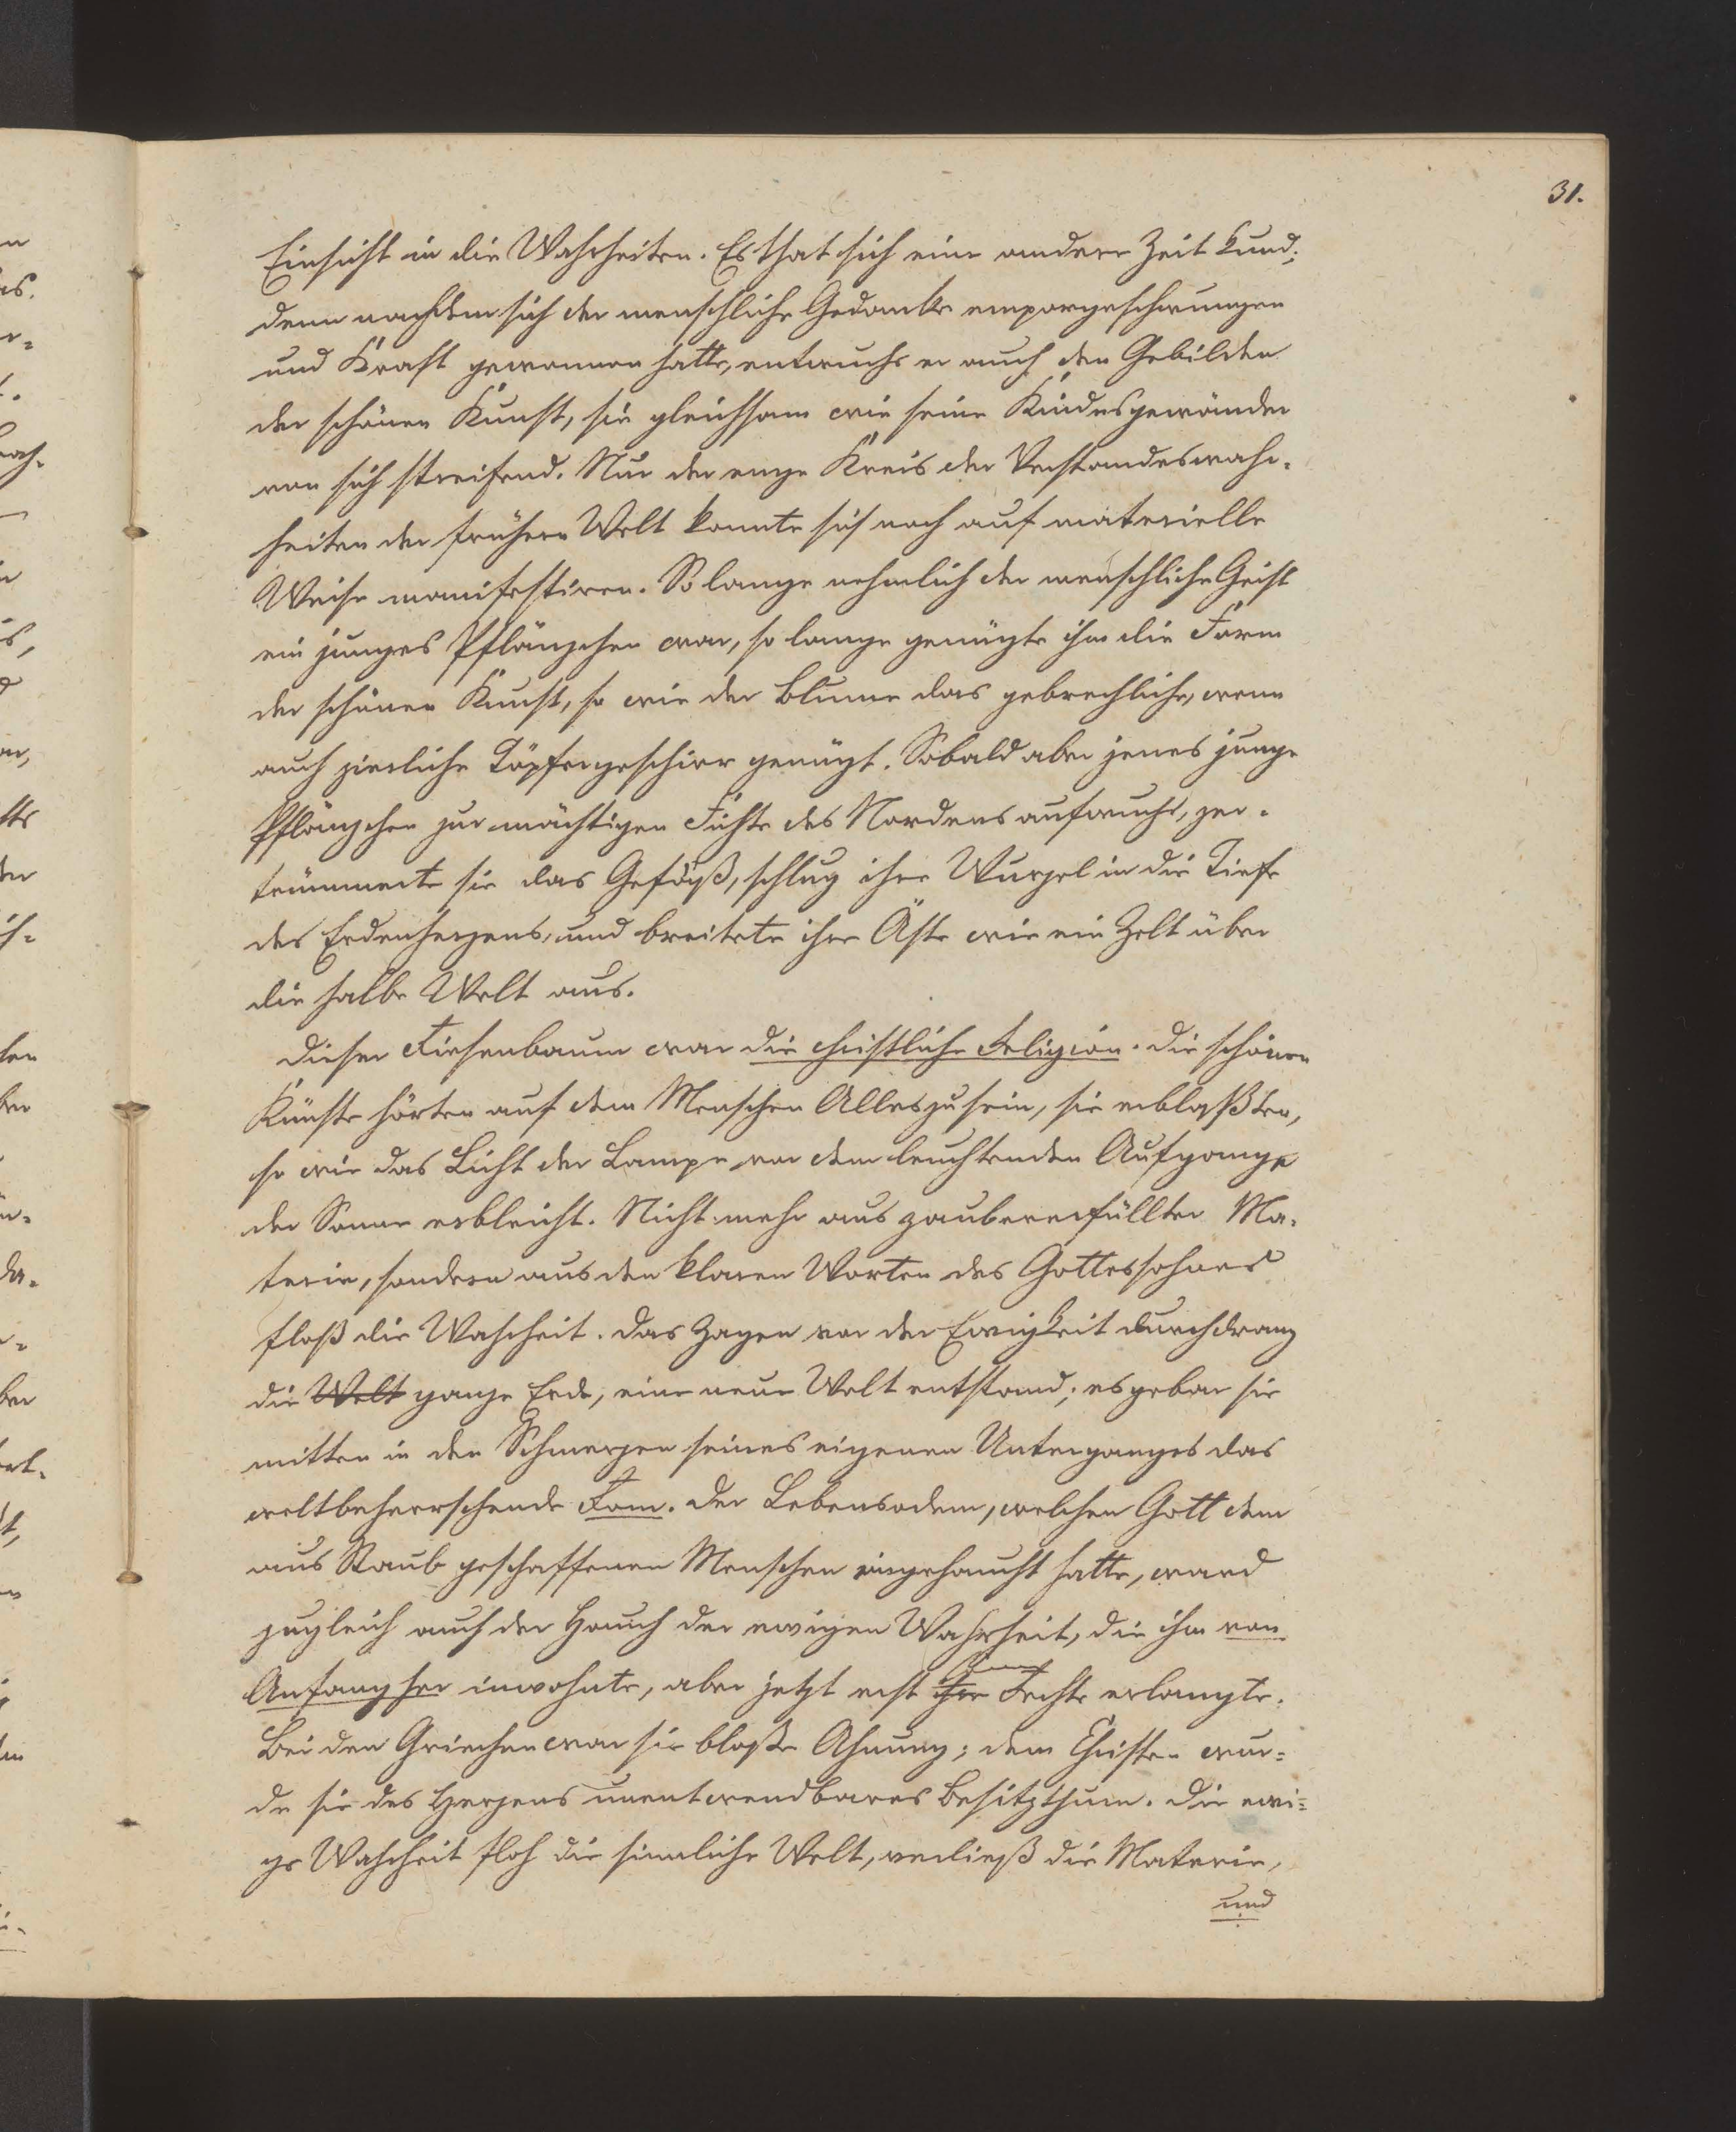 31.
Einsicht in die Wahrheiten. Es that sich eine andere Zeit kund;
denn nachdem sich der menschliche Gedanke emporgeschwungen
und Kraft gewonnen hatte, entwuchs er auch den Gebilden
der schönen Kunst, sie gleichsam wie seine Kindesgewänder
von sich streifend. Nur der enge Kreis der Verstandeswahr-
heiten der frühern Welt konnte sich noch auf materielle
Weise manifestiren. So lange nehmlich der menschliche Geist
ein junges Pflänzchen war, so lange genügte ihm die Form
der schönen Kunst, so wie der Blume das gebrechliche, wenn
auch zierliche Töpfergeschirr genügt. Sobald aber jenes junge
Pflänzchen zur mächtigen Fichte des Nordens aufwuchs, zer-
trümmerte sie das Gefäß, schlug ihre Wurzel in die Tiefe
des Erdenherzens, und breitete ihre Äste wie ein Zelt über
die halbe Welt aus.
Dieser Riesenbaum war die christliche Religion. Die schönen
Künste hörten auf dem Menschen Alles zu sein, sie erblaßten,
so wie das Licht der Lampe vor dem leuchtenden Aufgange
der Sonne erbleicht. Nicht mehr aus zaubererfüllter Ma-
terie, sondern aus den klaren Worten des Gottessohnes
floß die Wahrheit. Das Zagen vor der Ewigkeit durchdrang
die Welt ganze Erde, eine neue Welt entstand; es gebar sie
mitten in den Schmerzen seines eigenen Unterganges das
weltbeherrschende Rom. Der Lebensodem, welchen Gott dem
aus Staub geschaffenen Menschen eingehaucht hatte, ward
zugleich auch der Hauch der ewigen Wahrheit, die ihm von
Anfang her inwohnte, aber jetzt erst ihre Rechte erlangte.
Bei den Griechen war sie bloße Ahnung; dem Christen wur-
de sie des Herzens unentwendbares Besitzthum. Die ewi-
ge Wahrheit floh die sinnliche Welt, verließ die Materie,
und